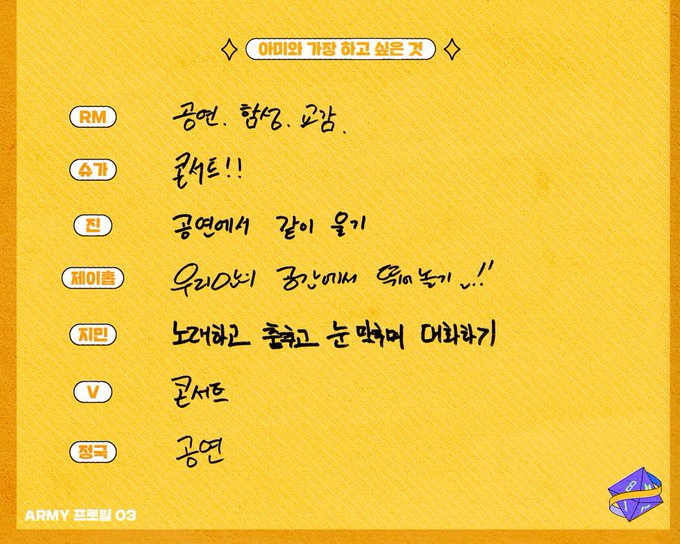 아미와 가장 하고 싶은 것
RM 공연. 함성. 교감.
슈가 콘서트!!
진 공연에서 같이 울기
제이홉 우리만의 공간에서 뛰어놀기 ..!!
지민 노래하고 춤추고 눈 맞추며 대화하기
V 콘서트
정국 공연
ARMY 프로필 03